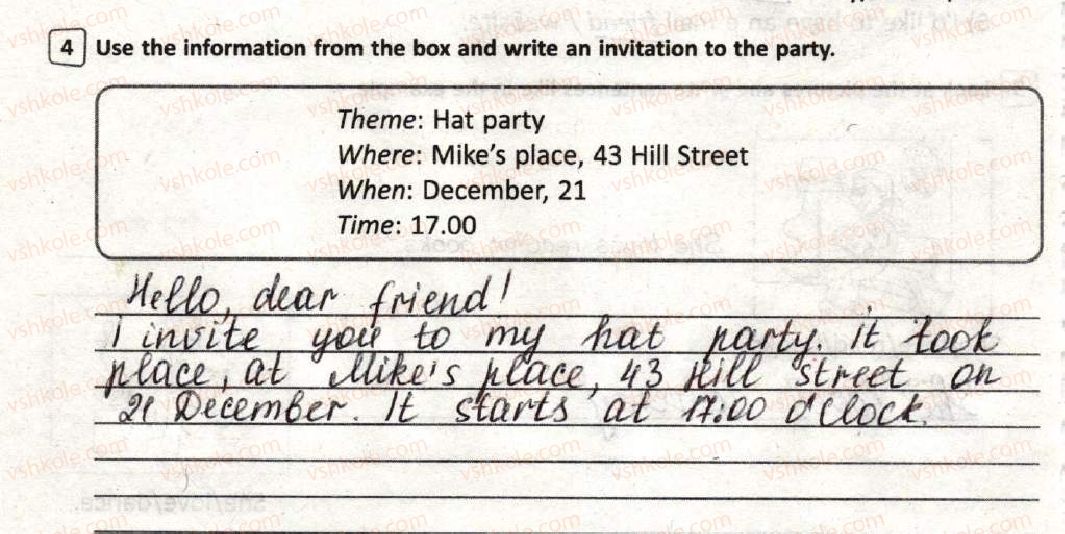 4 Use the information from the box and write an invitation to the party.
Theme: Hat party
Where: Mike's place, 43 Hill Street
When: December, 21
Time: 17.00
Hello, dear friend!
I invite you to my hat party. it took
place, at Mike's place, 43 Hill Street on
21 December. It starts at 17:00 o'clock.
she/love/dance.
vshkole.com